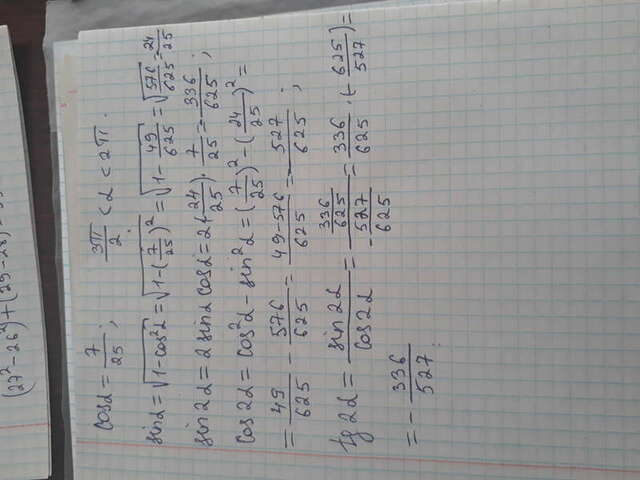 (27² - 26²) + (25 - 28
cosα = 7/25 ; 3π/2 < α < 2π.
sinα = √(1 - cos²α) = √(1 - (7/25)²) = √(1 - 49/625) = √(576/625) = 24/25
sin2α = 2 sinα cosα = 2·(-24/25) · 7/25 = -336/625 ;
cos2α = cos²α - sin²α = (7/25)² - (24/25)² =
= 49/625 - 576/625 = (49 - 576)/625 = -527/625 ;
tg2α = sin2α/cos2α = (336/625)/(-527/625) = 336/625 · (-625/527) =
= -336/527